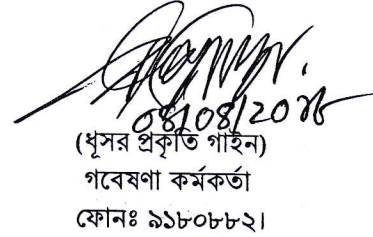 08/08/2016
(ধূসর প্রকৃতি গাইন)
গবেষণা কর্মকর্তা
ফোনঃ ৯১৮০৮৮২।